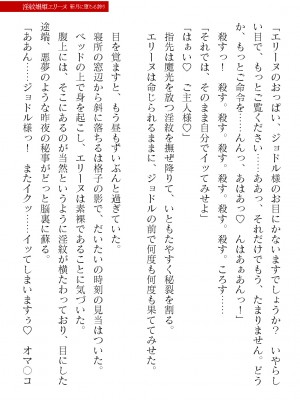 「エリーヌのおっぱい、ジョドル様のお目にかないますでしょうか? いやらし
い、もっとご覧ください……ああっ、それだけでもう、たまりません。どう
か、もっとご命令を……んんっ、あはあっ♡ んはぁぁあんっ！」
殺すっ！ 殺す。殺す。殺す。殺す。ころす……
「それでは、そのまま自分でイッてみせよ」
「はぁい♡ ご主人様♡」
指先は魔光を放つ淫紋を撫ぜ降りて、いともたやすく秘裂を割る。
エリーヌは命じられるままに、ジョドルの前で何度も何度も果ててみせた。
目を覚ますと、もう昼もずいぶんと過ぎていた。
寝所の窓辺から斜に落ちる格子の影で、だいたいの時刻の見当はついた。
ベッドの上で身を起こし、エリーヌは素裸であることに気づいた。
腹上には、そこにあるのが当然というように淫紋が横たわっており、目にした
途端、悪夢のような昨夜の秘事がどっと脳裏に蘇る。
「ああん……ジョドル様っ またイクッ、イッてしまいますぅ♡ オマ〇コ